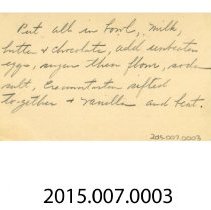 Put all in bowl, milk,
butter & chocolate, add unbeaten
eggs, sugar then flour, soda
salt, Creamtartar sifted
together & vanilla and beat.
2015.007.0003
2015.007.0003